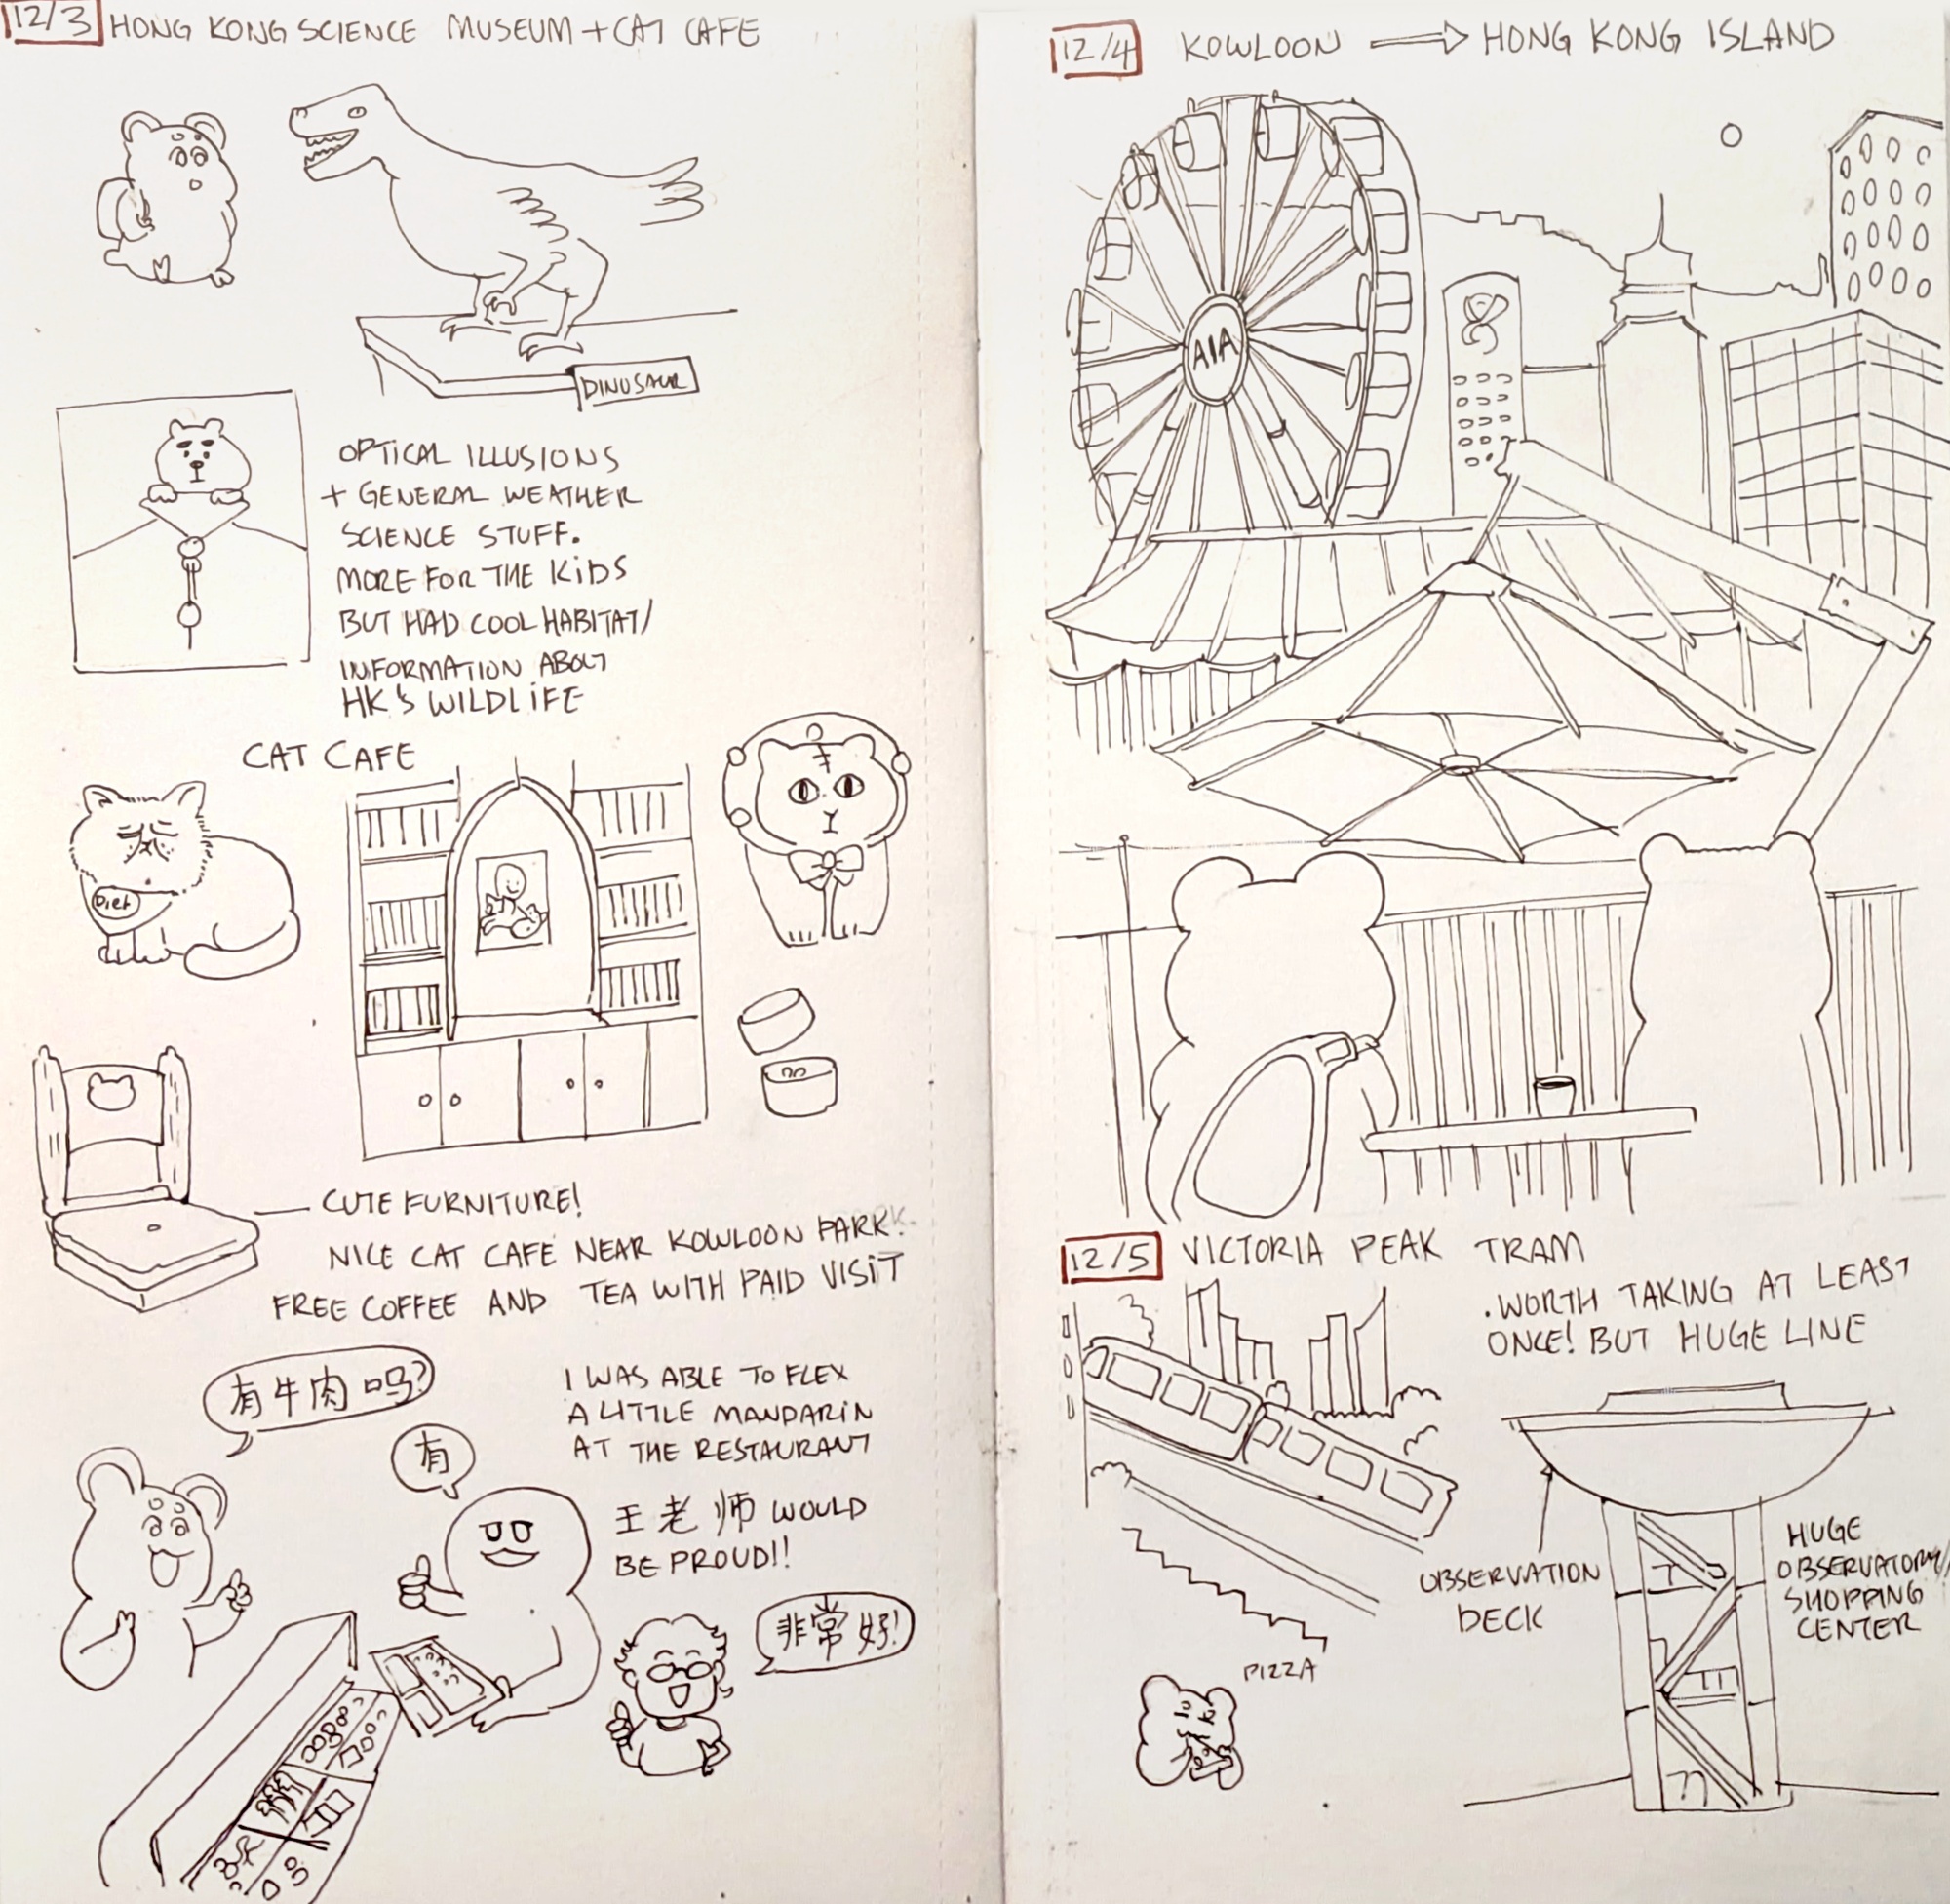 12/3 HONG KONG SCIENCE MUSEUM + CAT CAFE
DINUSAUR
OPTICAL ILLUSIONS
+ GENERAL WEATHER
SCIENCE STUFF.
MORE FOR THE KIDS
BUT HAD COOL HABITAT/
INFORMATION ABOUT
HK'S WILDLIFE
CAT CAFE
Diet
CUTE FURNITURE!
NICE CAT CAFE NEAR KOWLOON PARK.
FREE COFFEE AND TEA WITH PAID VISIT
有牛肉吗?
有
I WAS ABLE TO FLEX
A LITTLE MANDARIN
AT THE RESTAURANT
王老师 WOULD
BE PROUD!!
非常好!
12/4 KOWLOON → HONG KONG ISLAND
AIA
12/5 VICTORIA PEAK TRAM
.WORTH TAKING AT LEAST
ONCE! BUT HUGE LINE
OBSERVATION
DECK
HUGE
OBSERVATORY/
SHOPPING
CENTER
PIZZA